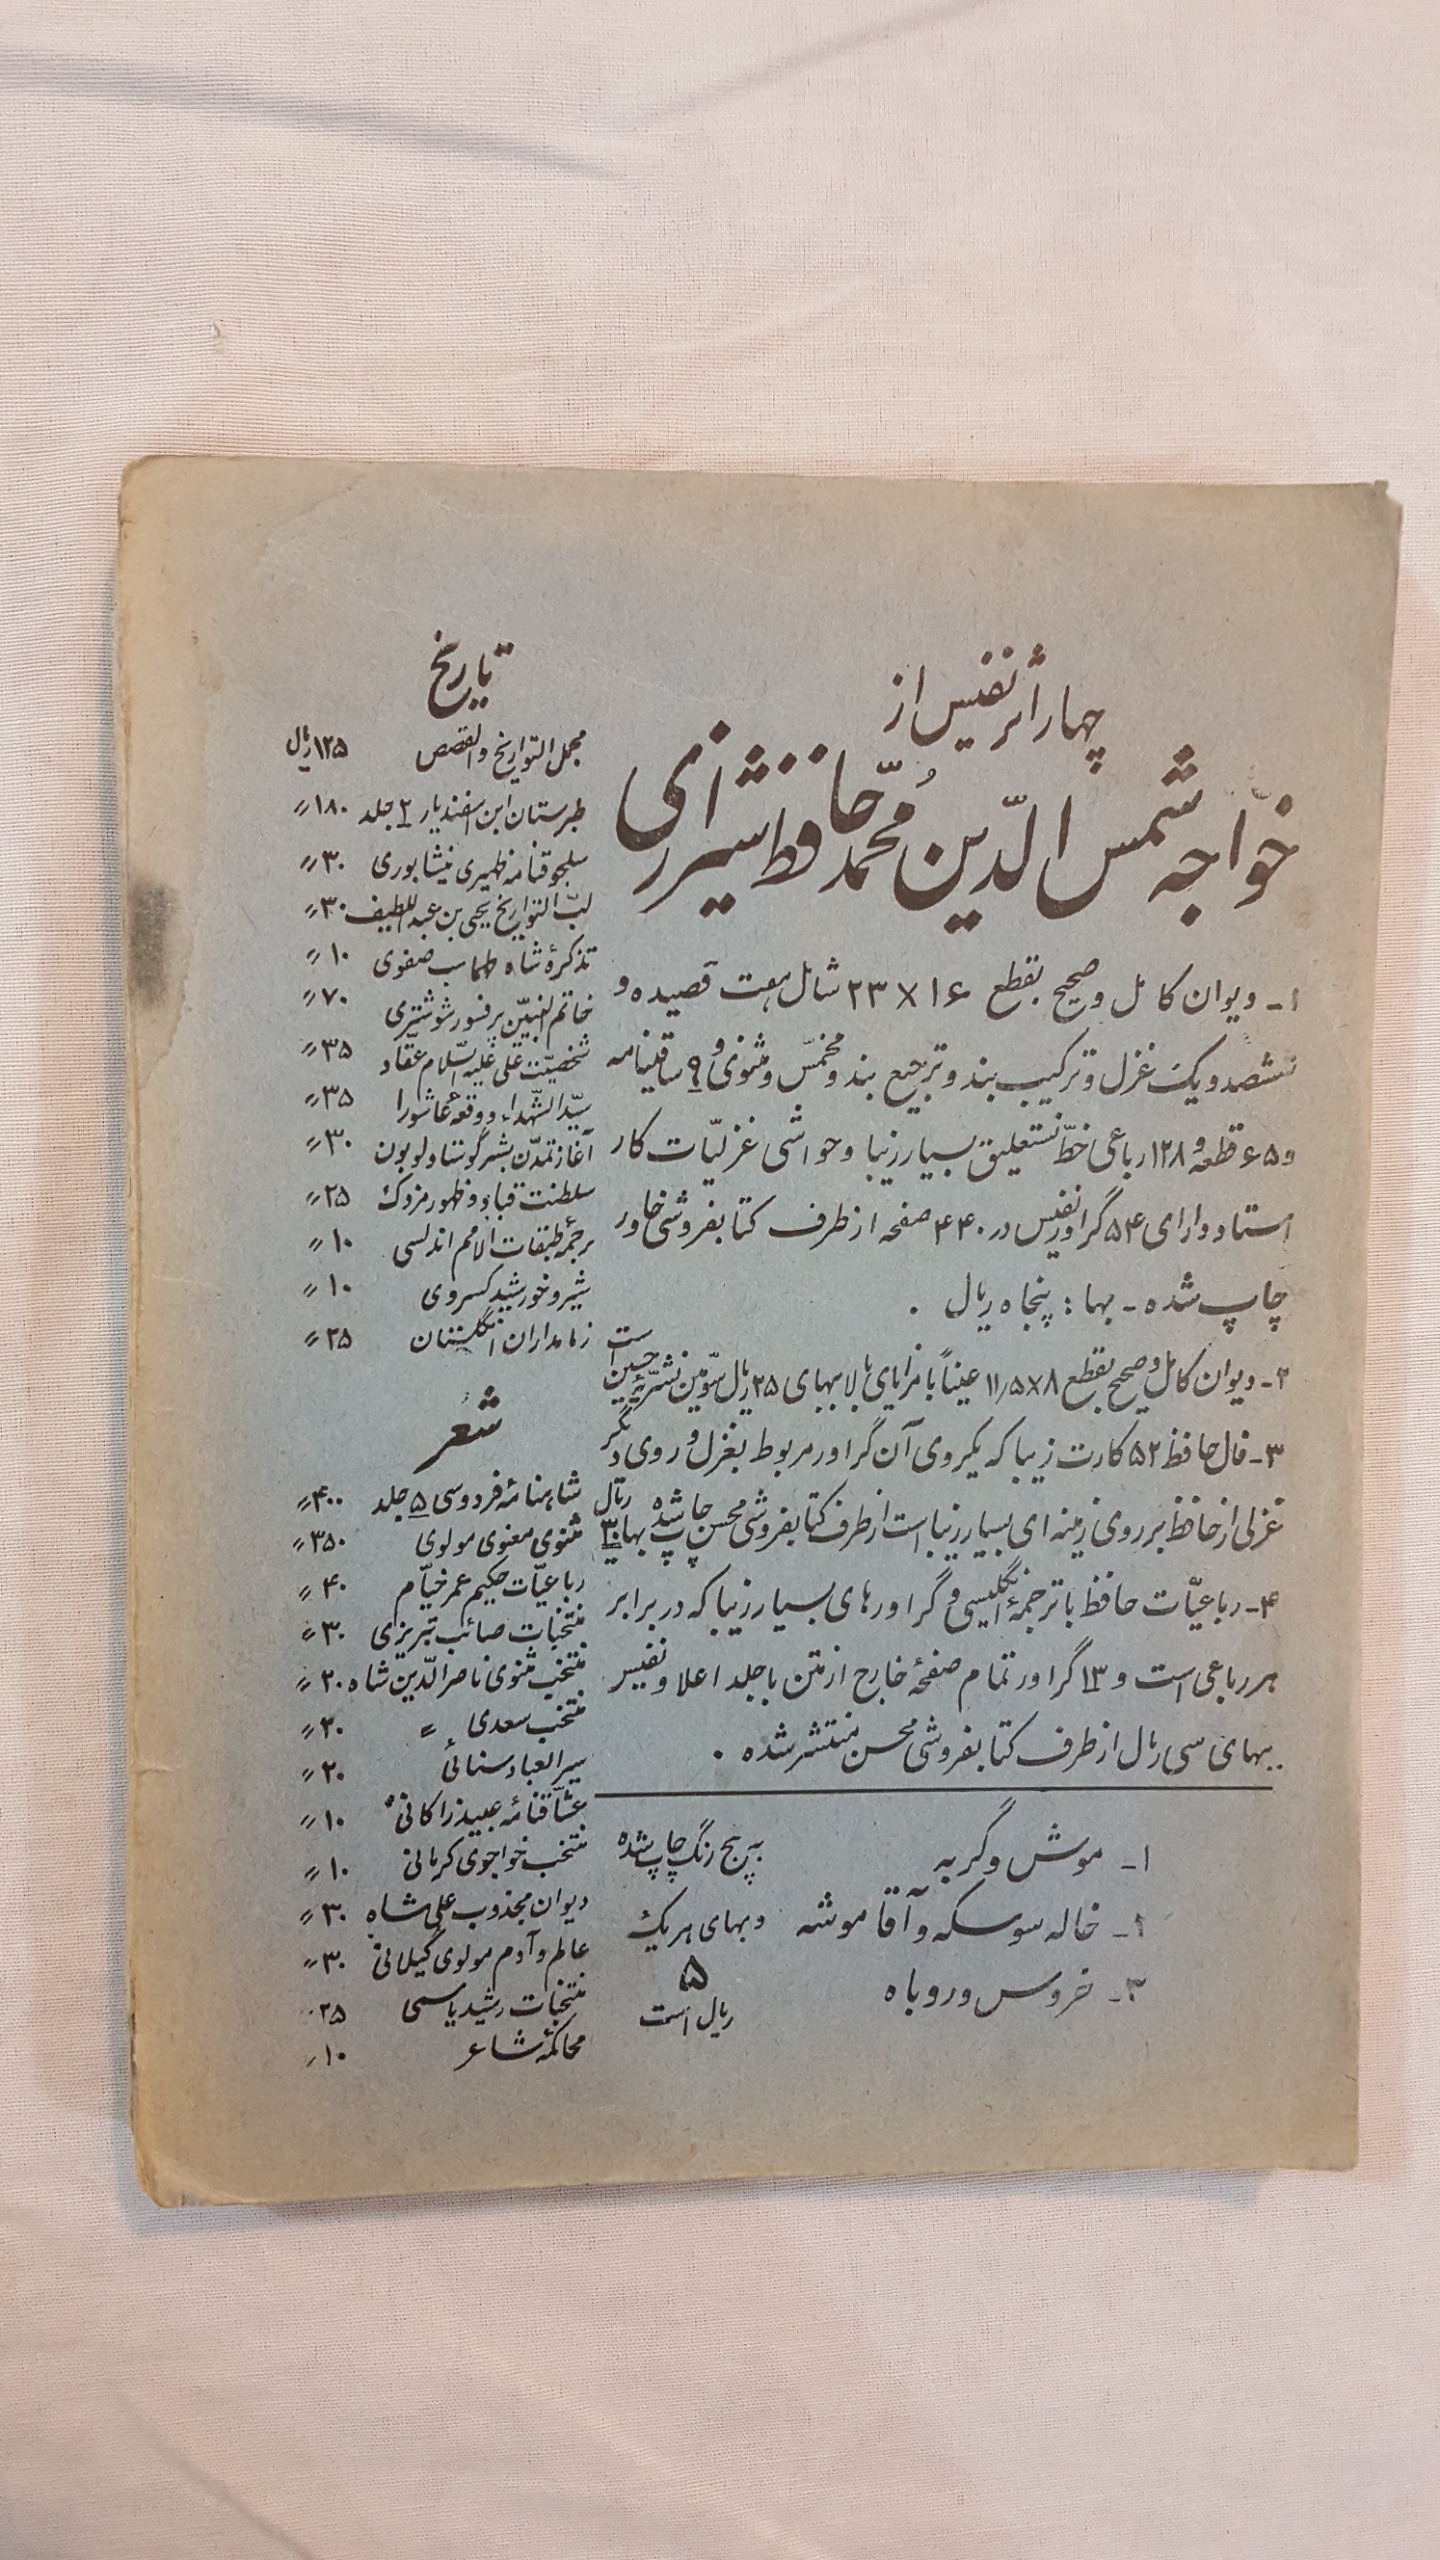 چهار اثر نفیس از
خواجه شمس الدّین مُحمّد حافظ شیرازی
۱ـ دیوان کامل و صحیح بقطع ۱۶ × ۲۳ شامل هفت قصیده و
ششصد و یک غزل و ترکیب بند و ترجیع بند و مخمّس و مثنوی و ۹ ساقینامه
و ۶۵ قطعه و ۱۲۸ رباعی خطّ نستعلیق بسیار زیبا و حواشی غزلیّات کار
استاد و دارای ۵۴ گراور نفیس در ۴۴۰ صفحه از طرف کتابفروشی خاور
چاپ شده ـ بها : پنجاه ریال .
۲ـ دیوان کامل و صحیح بقطع ۸×۱۱٫۵ عیناً با مزایای بالا ببهای ۲۵ ریال سوّمین نشریّهٔ جیبی است
۳ـ فال حافظ ۵۲ کارت زیبا که یکروی آن گراور مربوط بغزل و روی دیگر
غزلی از حافظ بر روی زمینه‌ای بسیار زیبا است از طرف کتابفروشی محسن چاپ شده بها ۳۰ ریال
۴ـ رباعیّات حافظ با ترجمهٔ انگلیسی و گراورهای بسیار زیبا که در برابر
هر رباعی است و ۱۳ گراور تمام صفحهٔ خارج از متن با جلد اعلا و نفیس
ببهای سی ریال از طرف کتابفروشی محسن منتشر شده .
۱ـ موش و گربه
۲ـ خاله سوسکه و آقا موشه
۳ـ خروس و روباه
به پنج رنگ چاپ شده
و بهای هر یک
۵
ریال است
تاریخ
مجمل التواریخ والقصص ۱۲۵ ریال
طبرستان ابن اسفندیار ۲ جلد ۱۸۰ 〃
سلجوقنامه ظهیری نیشابوری ۳۰ 〃
لبّ التواریخ یحیی بن عبداللطیف ۳۰ 〃
تذکرهٔ شاه طهماسب صفوی ۱۰ 〃
خاتم النبیّین پرفسور شوشتری ۷۰ 〃
شخصیّت علی علیه السّلام عقّاد ۳۵ 〃
سیّدالشهداء و وقعهٔ عاشورا ۳۵ 〃
آغاز تمدّن بشر گوستاولوبون ۳۰ 〃
سلطنت قباد و ظهور مزدک ۲۵ 〃
ترجمهٔ طبقات الامم اندلسی ۱۰ 〃
شیر و خورشید کسروی ۱۰ 〃
زمامداران انگلستان ۲۵ 〃
شعر
شاهنامهٔ فردوسی ۵ جلد ۴۰۰ 〃
مثنوی معنوی مولوی ۳۵۰ 〃
رباعیّات حکیم عمر خیّام ۴۰ 〃
منتخبات صائب تبریزی ۳۰ 〃
منتخب مثنوی ناصرالدّین شاه ۲۰ 〃
منتخب سعدی 〃 ۲۰ 〃
سیرالعباد سنائی ۲۰ 〃
عشّاقنامهٔ عبید زاکانی ۱۰ 〃
منتخب خواجوی کرمانی ۱۰ 〃
دیوان مجذوب علی شاه ۳۰ 〃
عالم و آدم مولوی گیلانی ۳۰ 〃
منتخبات رشید یاسمی ۲۵
محاکمهٔ شاعر ۱۰ ٫